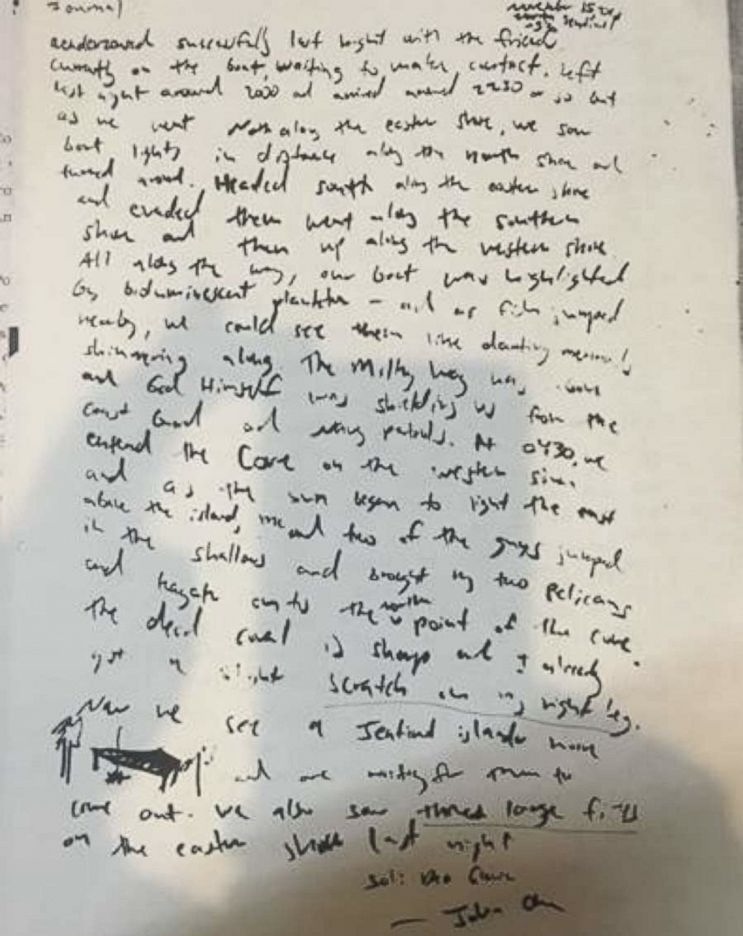 Journal
November 15
North Sentinel
rendezvoused successfully last night with the friend
currently on the boat, waiting to make contact. Left
last night around 2000 and arrived around 2230 or so but
as we went North along the eastern shore, we saw
boat lights in distance along the north shore and
turned around. Headed south along the eastern shore
and evaded them went along the southern
shore and then up along the western shore.
All along the way, our boat was highlighted
by bioluminescent plankton – and as fish jumped
nearby, we could see them like darting mermaids
shimmering along. The Milky Way was above
and God Himself was shielding us from the
Coast Guard and Navy patrols. At 0430, we
entered the Cove on the western side
and as the sun began to light the east
above the island, me and two of the guys jumped
in the shallows and brought my two pelicans
and kayak onto the north point of the cove.
The dead coral is sharp and I already
got a slight scratch on my right leg.
Now we see a Sentinel islander house
and are waiting for them to
come out. We also saw three large fires
on the eastern shore last night
Soli Deo Gloria
— John Chau